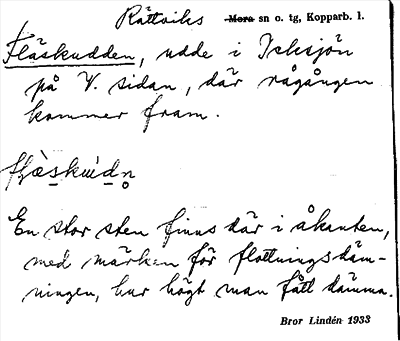 Rättviks Mora sn o. tg, Kopparb. l.
Fläskudden, udde i Icksjön
på V. sidan, där rågången
kommer fram.
En stor sten finns där i åkanten,
med märken för flottningsdäm-
ningen, hur högt man fått dämma.
Bror Lindén 1933